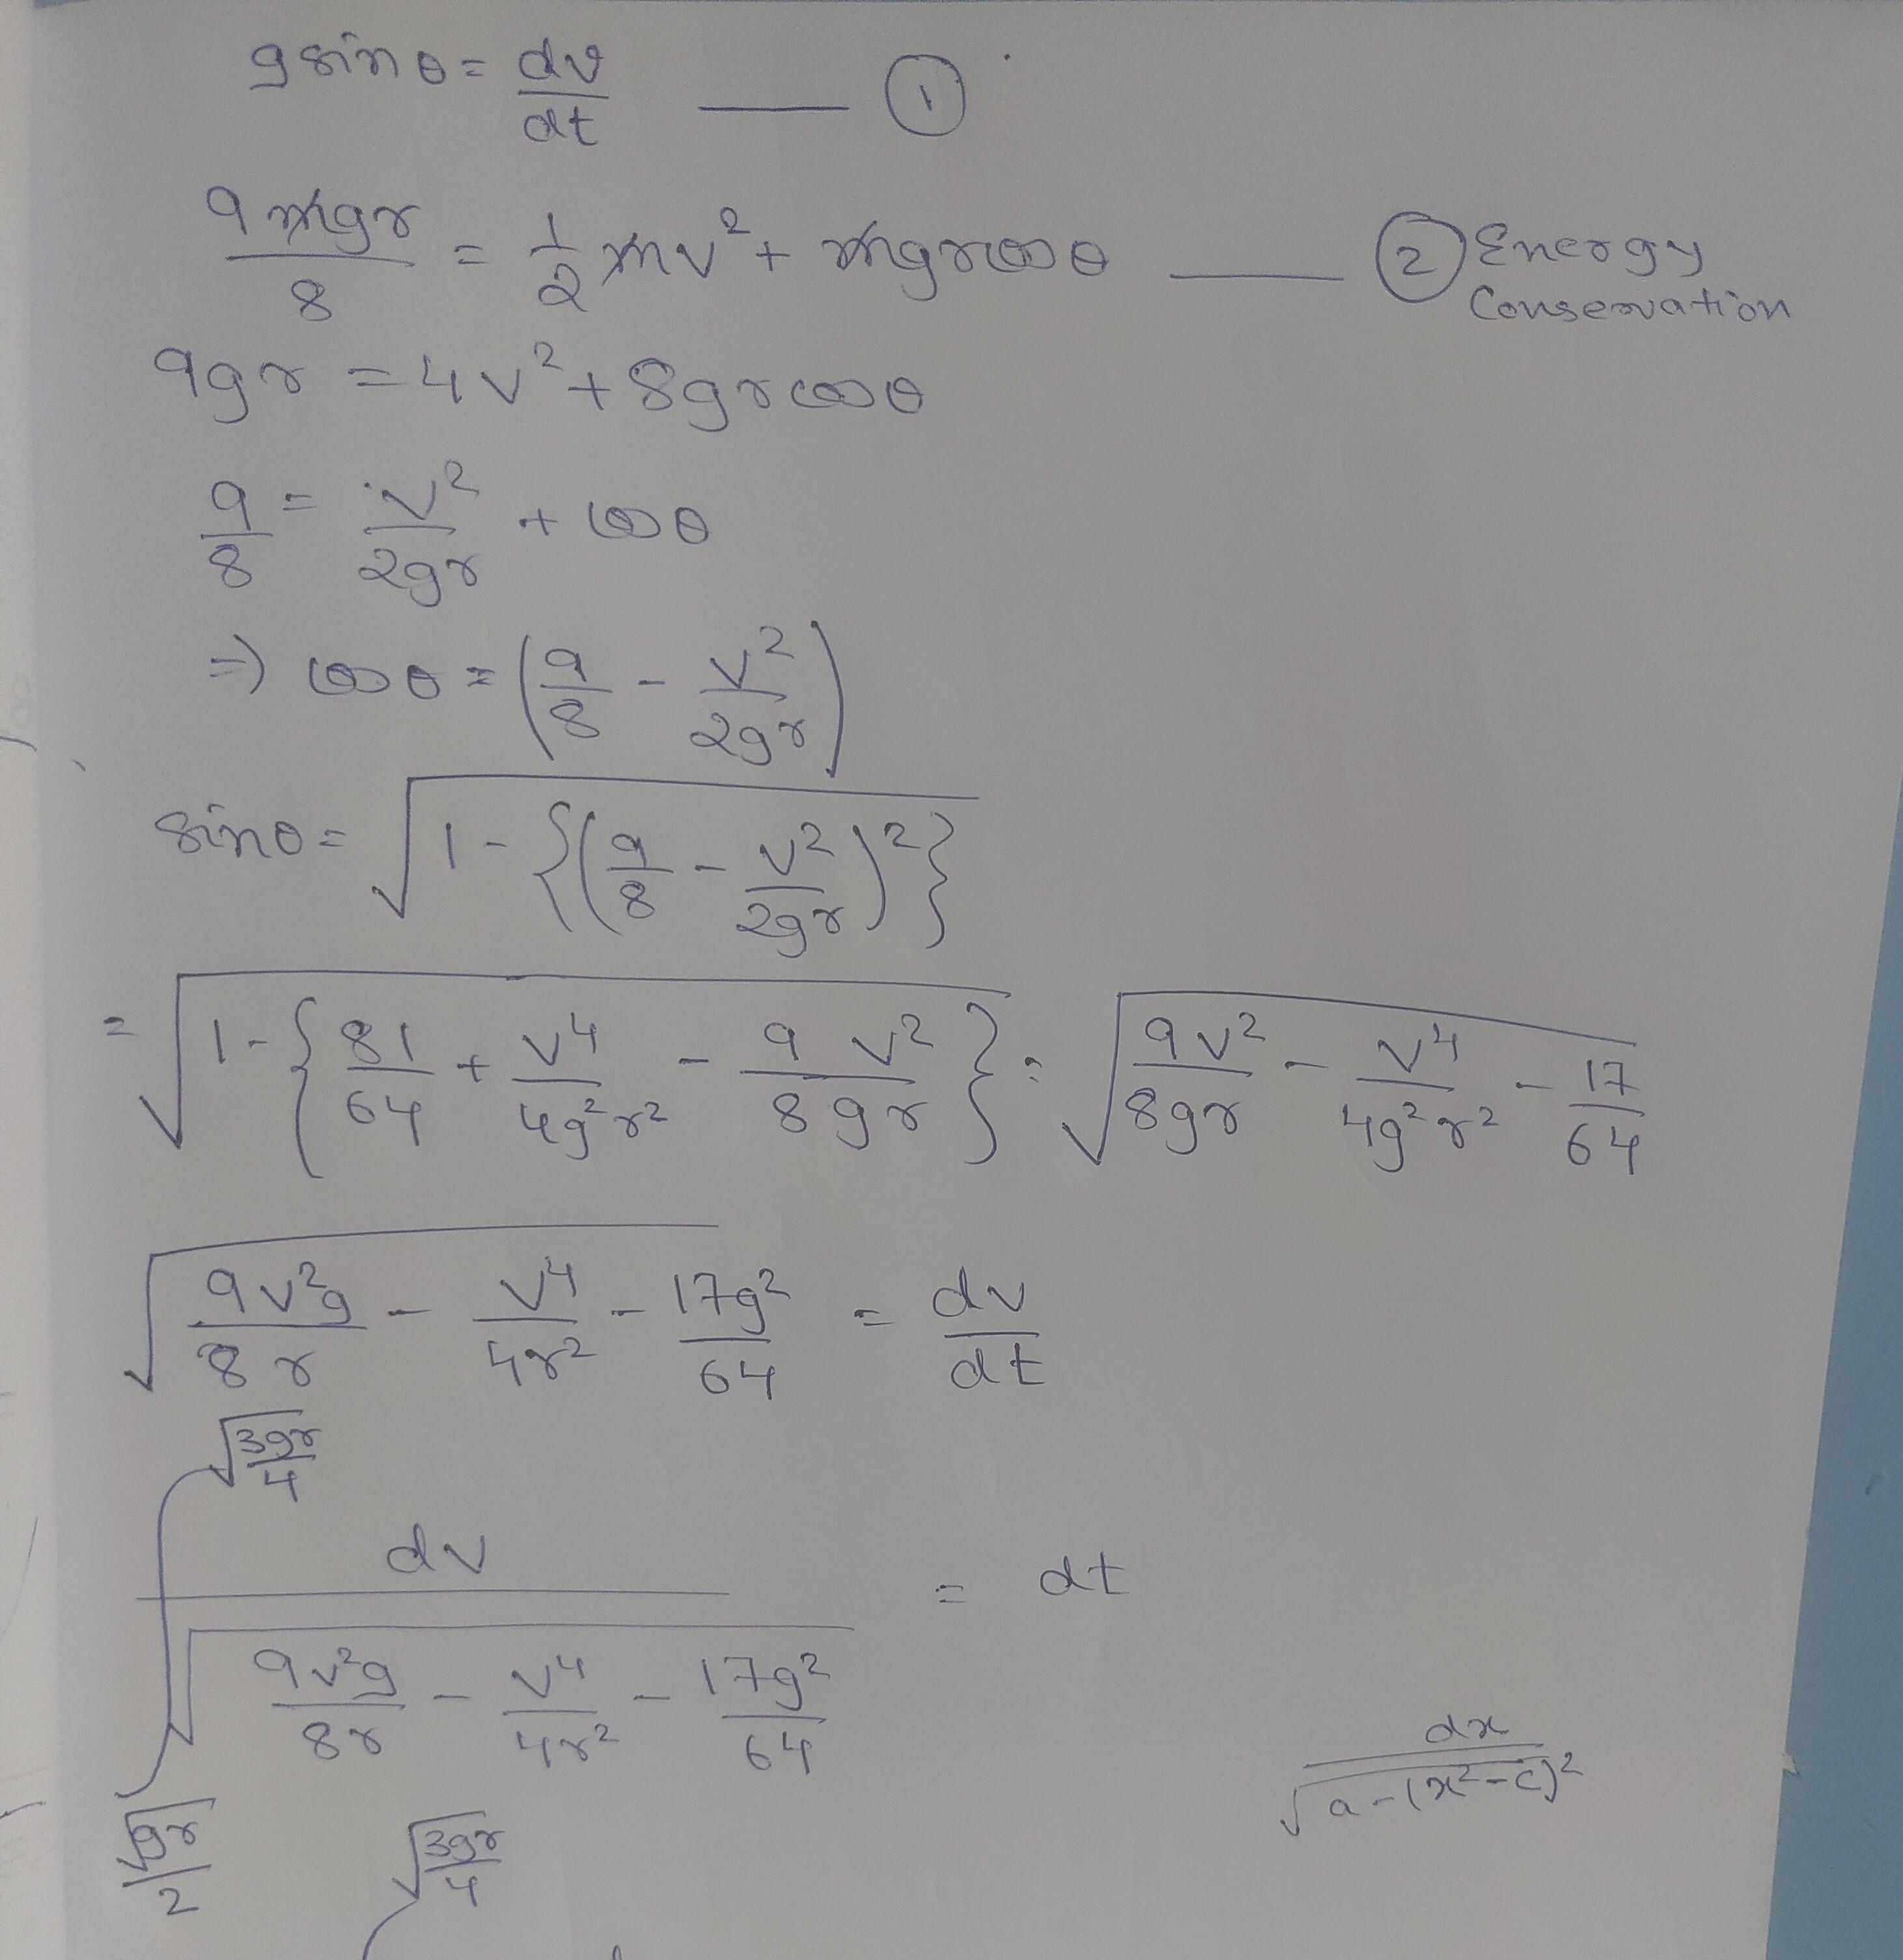 g sin θ = dv/dt —— ①
9mgr/8 = 1/2 mv² + mgr cos θ —— ② Energy Conservation
9gr = 4v² + 8gr cos θ
9/8 = v²/2gr + cos θ
⇒ cos θ = (9/8 - v²/2gr)
sin θ = √(1 - {(9/8 - v²/2gr)²})
= √(1 - {81/64 + v⁴/4g²r² - 9v²/8gr}) = √(9v²/8gr - v⁴/4g²r² - 17/64)
√(9v²g/8r - v⁴/4r² - 17g²/64) = dv/dt
√(3gr/4)
∫ dv/√(9v²g/8r - v⁴/4r² - 17g²/64) = dt
√gr/2
dx/√(a-(x²-c)²)
√(3gr/4)